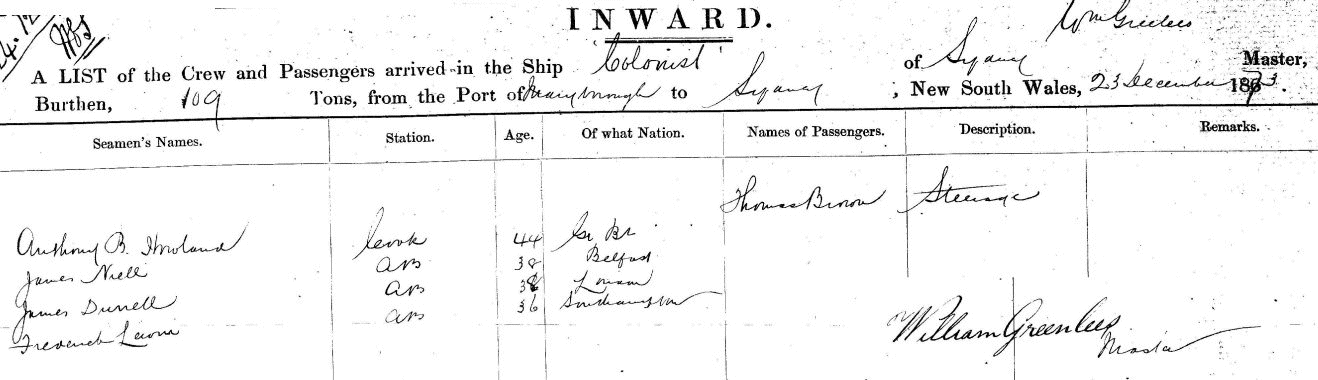 INWARD.
Wm Greenlees
A LIST of the Crew and Passengers arrived in the Ship 'Colonist' of Sydney Master,
Burthen, 109 Tons, from the Port of Maryborough to Sydney, New South Wales, 23 December 1873.
Seamen's Names. Station. Age. Of what Nation. Names of Passengers. Description. Remarks.
Thomas Brown Steerage
Anthony B. Howland Cook 44 Gr Br
James Niell AB 38 Belfast
James Durrell AB 38 London
Frederick AB 36 Southampton
William Greenlees
Master